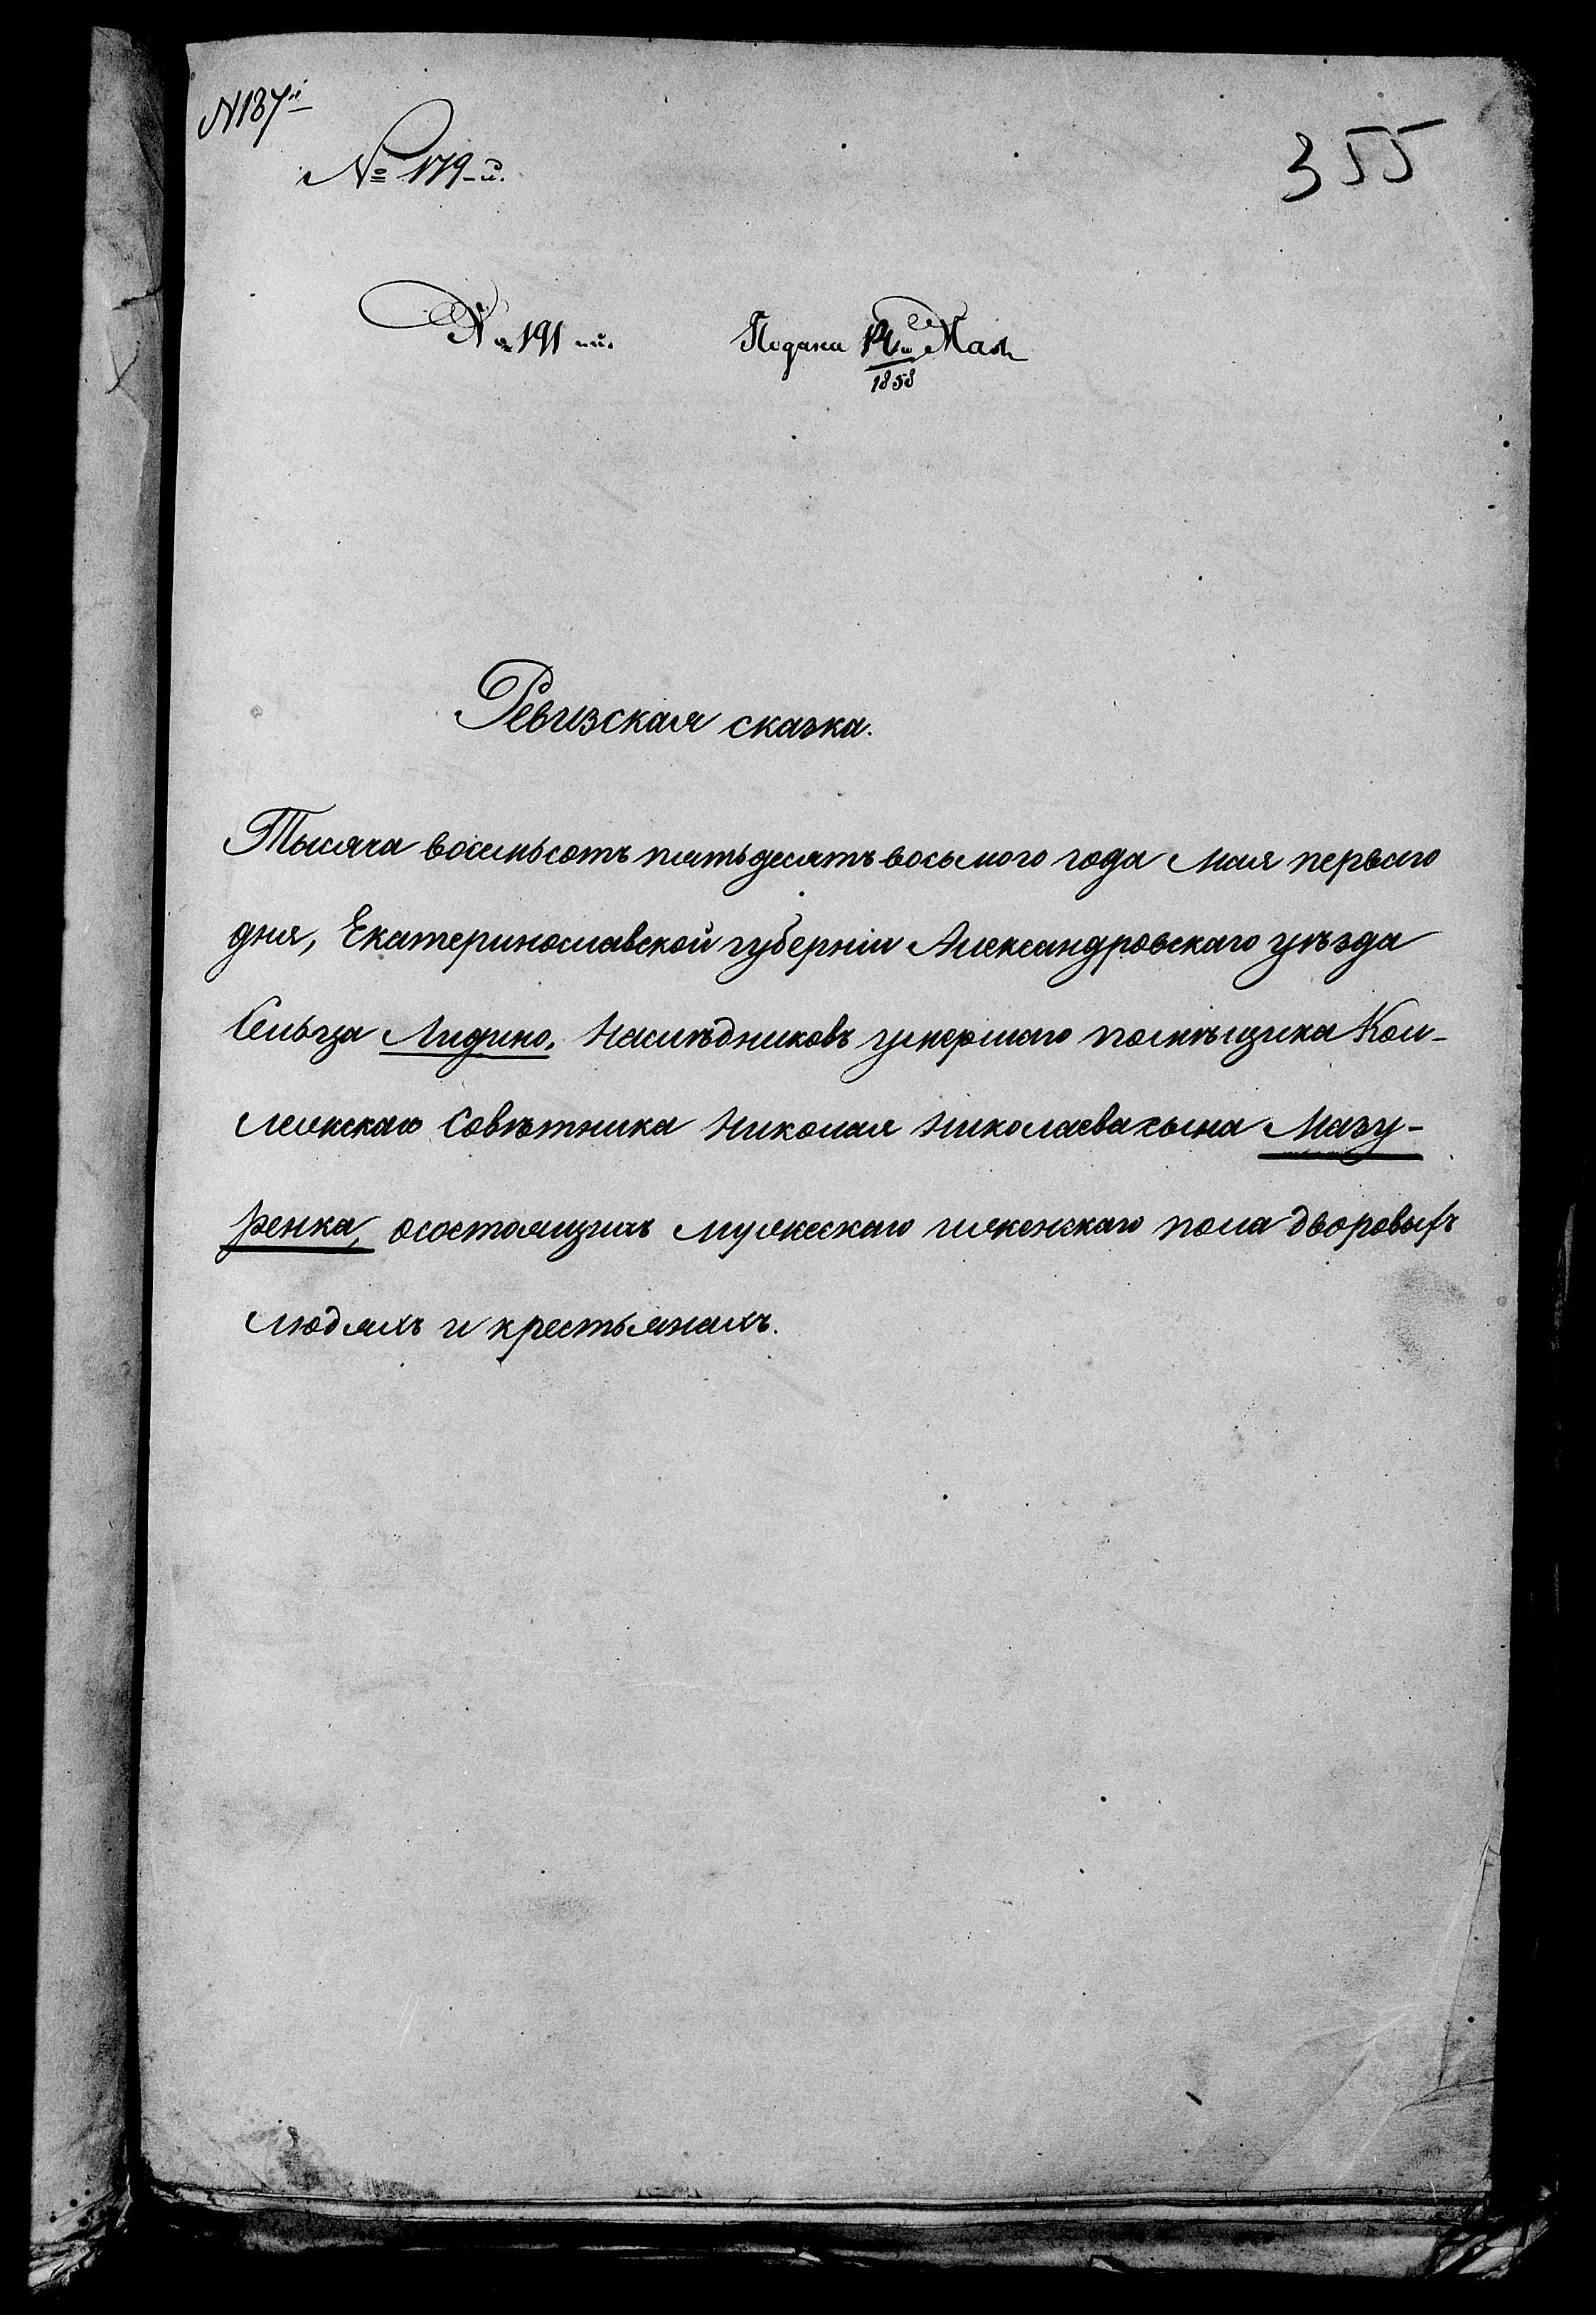 N 187й
355
№ 179-й.
№ 191-ый. Подана 14го Мая
1858
Ревизская сказка.
Тысяча восемьсотъ пятьдесятъ восьмого года Мая перваго
дня, Екатеринославской губерніи Александровскаго уѣзда
Сельца Лидино, Наслѣдниковъ умершаго помѣщика Кол-
лежскаго Совѣтника Николая Николаева сына Мазу-
ренка, о состоящихъ мужескаго и женскаго пола дворовыхъ
людяхъ и крестьянахъ.